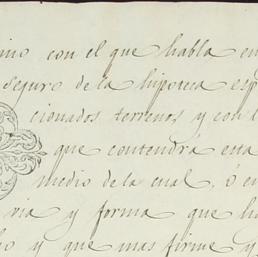 ino con el que habla en
seguro de la hipoteca esp
cionados terrenos y con l
que contendrá esta
medio de la cual, ó en
via y forma que ha
lo y que mas firme y